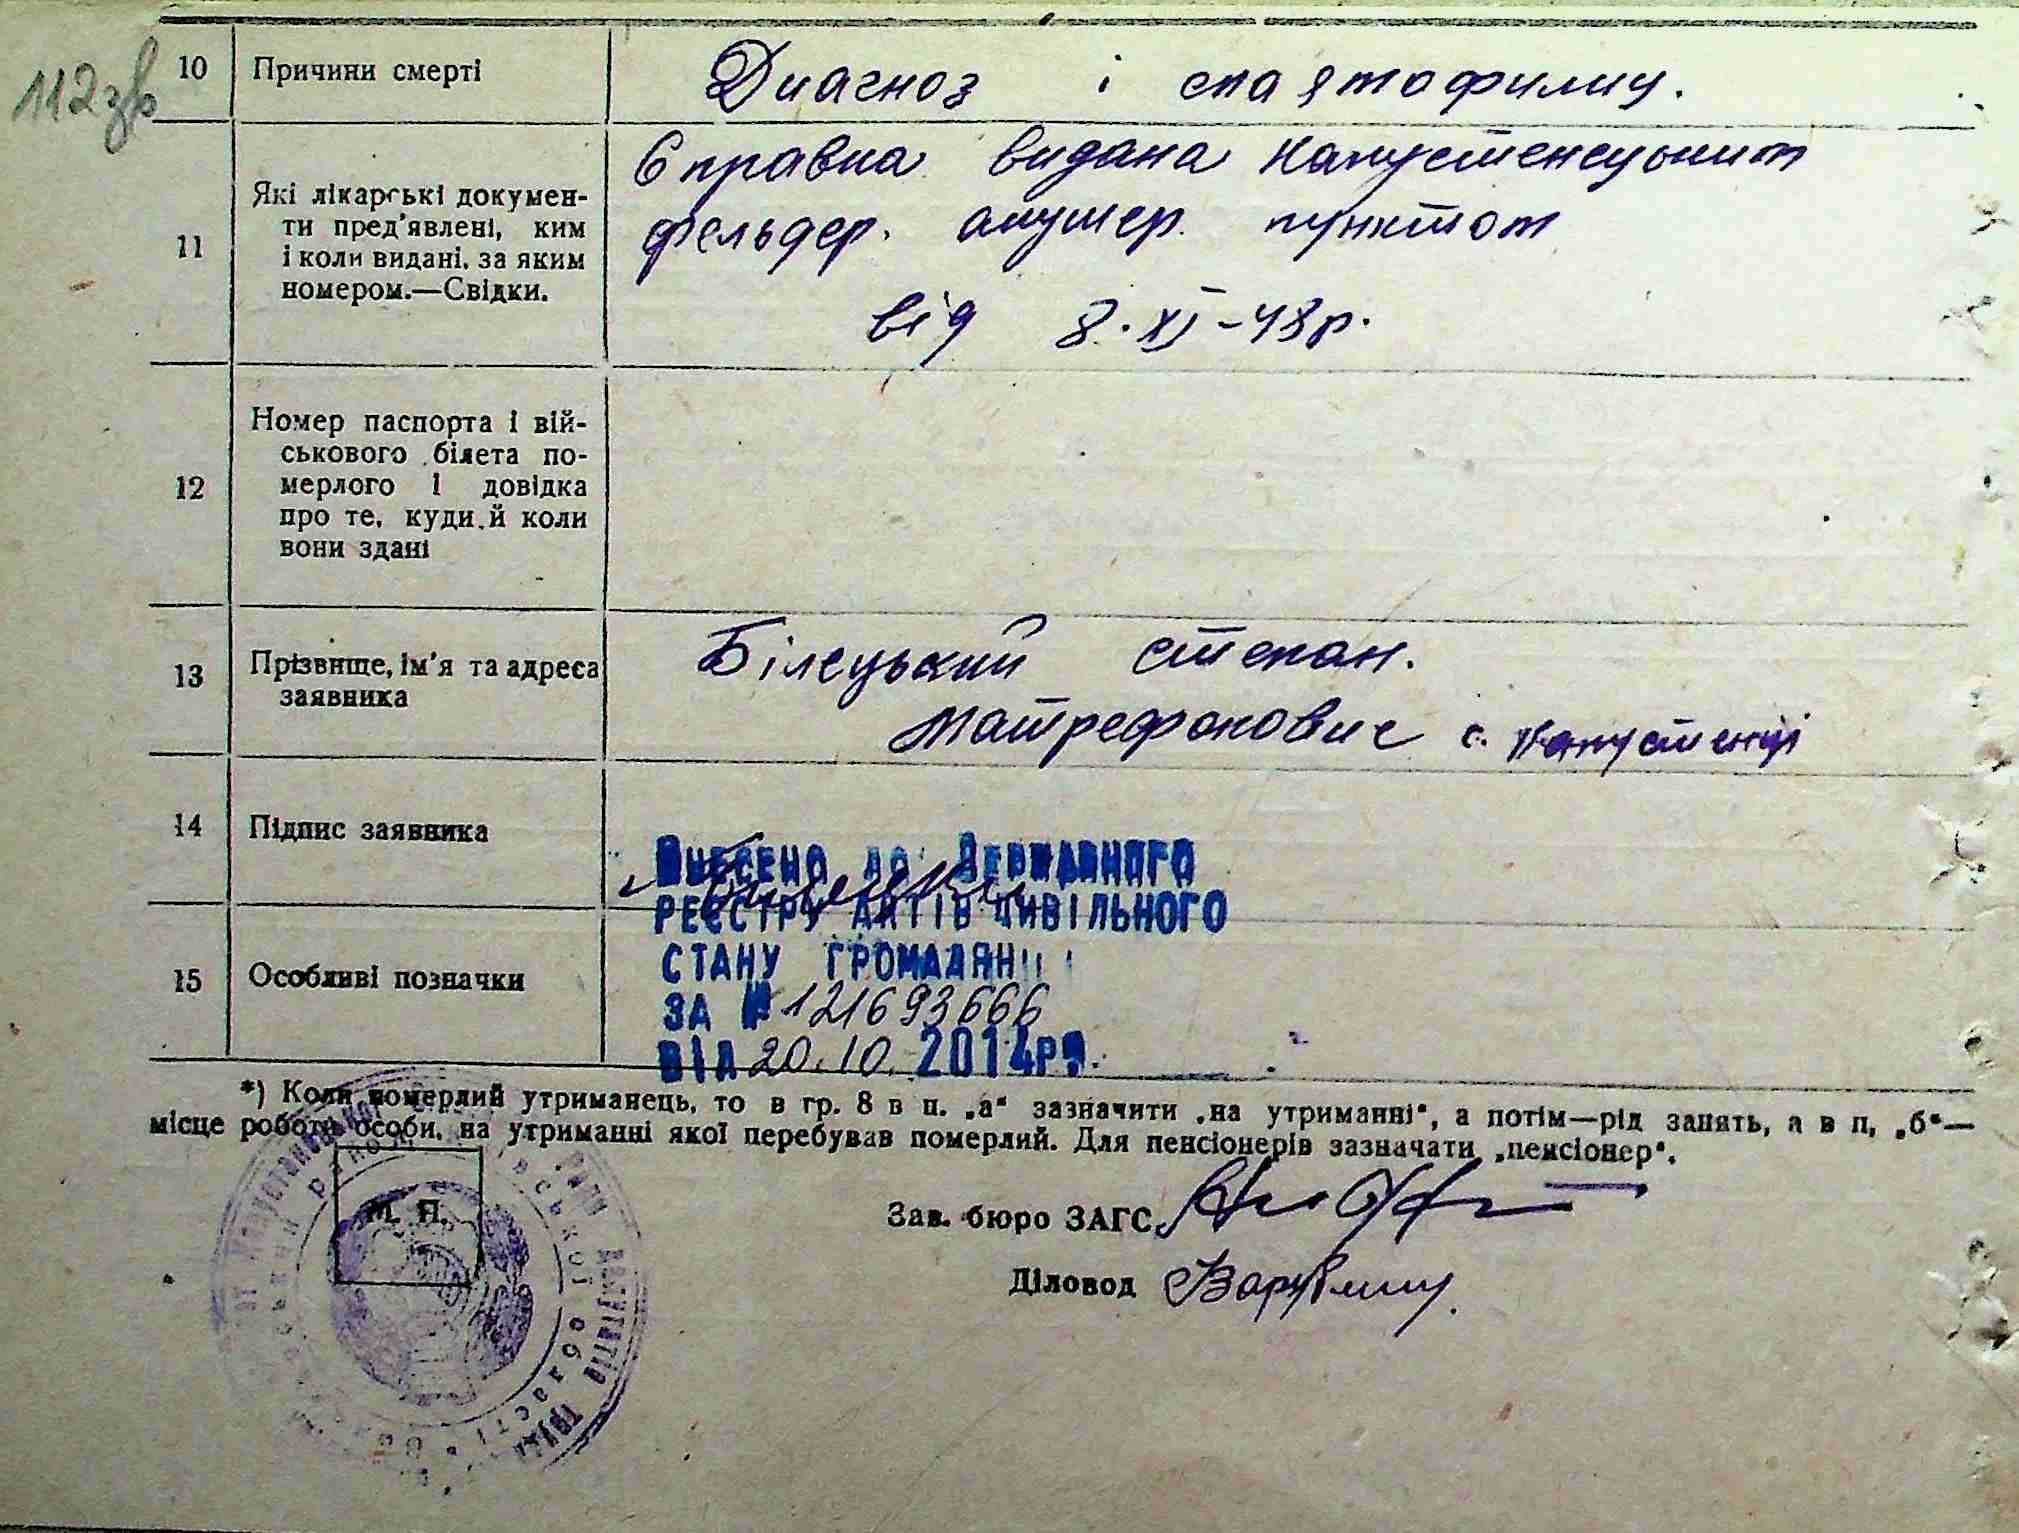 112зв
10 Причини смерті
Диагноз і спаятофилиу.
11 Які лікарські докумен-
ти пред'явлені, ким
і коли видані, за яким
номером.—Свідки.
Справка видана Капустенецьким
фельдер. акушер. пунктом
від 8.XI-48р.
12 Номер паспорта і вій-
ськового білета по-
мерлого і довідка
про те, куди й коли
вони здані
13 Прізвище, ім'я та адреса
заявника
Білецький Степан.
Матрефонович с. Капустенці
14 Підпис заявника
15 Особливі позначки
Внесено до Державного
реєстру актів цивільного
стану громадян
за № 121693666
від 20.10. 2014р.
*) Коли померлий утриманець, то в гр. 8 в п. „а“ зазначити „на утриманні“, а потім—рід занять, а в п, „б“—
місце роботи особи, на утриманні якої перебував померлий. Для пенсіонерів зазначати „пенсіонер“.
М. П.
Зав. бюро ЗАГС
Діловод